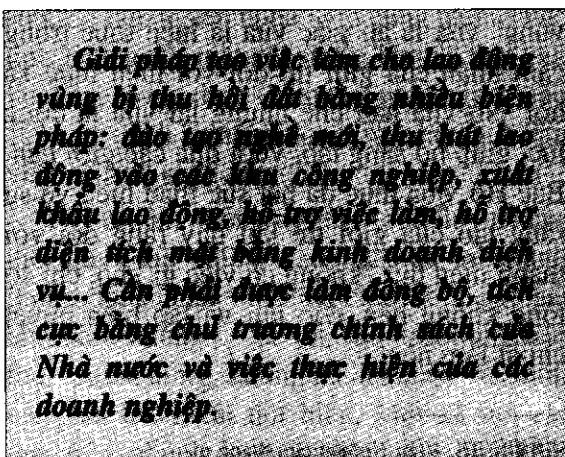 Giải pháp tạo việc làm cho lao động
vùng bị thu hồi đất bằng nhiều biện
pháp: đào tạo nghề mới, thu hút lao
động vào các khu công nghiệp, xuất
khẩu lao động, hỗ trợ việc làm, hỗ trợ
diện tích mặt bằng kinh doanh dịch
vụ... Cần phải được làm đồng bộ, tích
cực bằng chủ trương chính sách của
Nhà nước và việc thực hiện của các
doanh nghiệp.